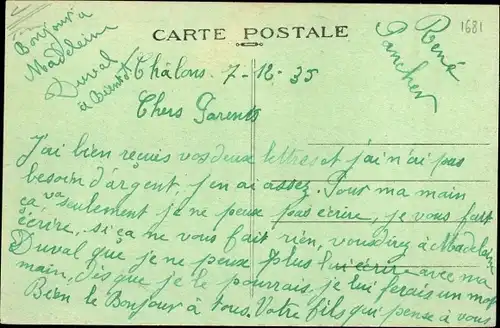 CARTE POSTALE
1681
Bonjour à
Madeleine
Duval
à Bientot
René
Pancher
Châlons 7-12-35
Chers Parents
J'ai bien recuis vos deux lettres et j'ai n'ai pas
besoin d'argent, j'en ai assez. Pour ma main
ça va seulement je ne peux pas écrire, je vous fait
écrire, si ça ne vous fait rien, vous direz à Madelein
Duval que je ne peux plus lui écrire avec ma
main, dis que je le pourrais, je lui ferais un mot
Bien le Bonjour à tous. Votre fils qui pense à vous